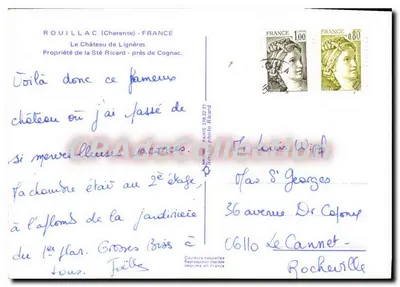 ROUILLAC (Charente) - FRANCE
Le Château de Lignères
Propriété de la Sté Ricard - près de Cognac.
Voilà donc ce fameux
château où j'ai passé de
si merveilleuses vacances.
Ma chambre était au 2e étage,
à l'aplomb de la jardinière
du 1er
Grosses Bises à
tous. Joëlle
FRANCE
1,00
FRANCE
0,80
Mr Louis
Mas St Georges
36 avenue Dr
06110 Le Cannet
Rocheville
Couleurs naturelles
Reproduction interdite
Imprimé en France